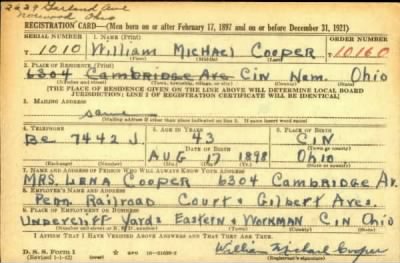 2639 Garland Ave
Norwood Ohio
REGISTRATION CARD—(Men born on or after February 17, 1897 and on or before December 31, 1921)
SERIAL NUMBER 1. NAME (Print) ORDER NUMBER
T 1010 William Michael Cooper 10160
(First) (Middle) (Last)
2. PLACE OF RESIDENCE (Print)
6304 Cambridge Ave Cin Ham. Ohio
(Number and street) (Town, township, village, or city) (County) (State)
[THE PLACE OF RESIDENCE GIVEN ON THE LINE ABOVE WILL DETERMINE LOCAL BOARD
JURISDICTION; LINE 2 OF REGISTRATION CERTIFICATE WILL BE IDENTICAL]
3. MAILING ADDRESS
same
[Mailing address if other than place indicated on line 2. If same insert word same]
4. TELEPHONE 5. AGE IN YEARS 6. PLACE OF BIRTH
Be 7442 J. 43 Cin
DATE OF BIRTH (Town or county)
Aug 17 1898 Ohio
(Exchange) (Number) (Mo.) (Day) (Yr.) (State or country)
7. NAME AND ADDRESS OF PERSON WHO WILL ALWAYS KNOW YOUR ADDRESS
Mrs. Lena Cooper 6304 Cambridge Av.
8. EMPLOYER'S NAME AND ADDRESS
Penn Railroad Court & Gilbert Aves.
9. PLACE OF EMPLOYMENT OR BUSINESS
Undercliff Yards Eastern & Workman Cin Ohio
(Number and street or R. F. D. number) (Town) (County) (State)
I AFFIRM THAT I HAVE VERIFIED ABOVE ANSWERS AND THAT THEY ARE TRUE.
D. S. S. Form 1
(Revised 1-1-42) (over)
William Michael Cooper
(Registrant's signature)